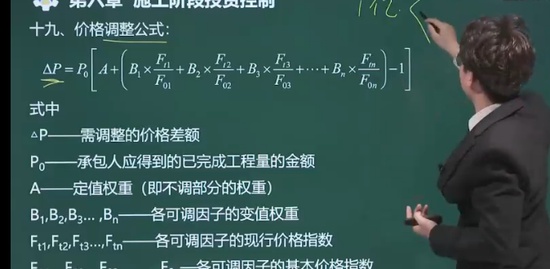 第六章 施工阶段投资控制
1亿
十九、价格调整公式：
ΔP=P₀[A+(B₁×F_{t1}/F_{01}+B₂×F_{t2}/F_{02}+B₃×F_{t3}/F_{03}+⋯+Bₙ×F_{tn}/F_{0n})−1]
式中
△P——需调整的价格差额
P₀——承包人应得到的已完成工程量的金额
A——定值权重（即不调部分的权重）
B₁,B₂,B₃…,Bₙ——各可调因子的变值权重
F_{t1},F_{t2},F_{t3}…,F_{tn}——各可调因子的现行价格指数
——各可调因子的基本价格指数